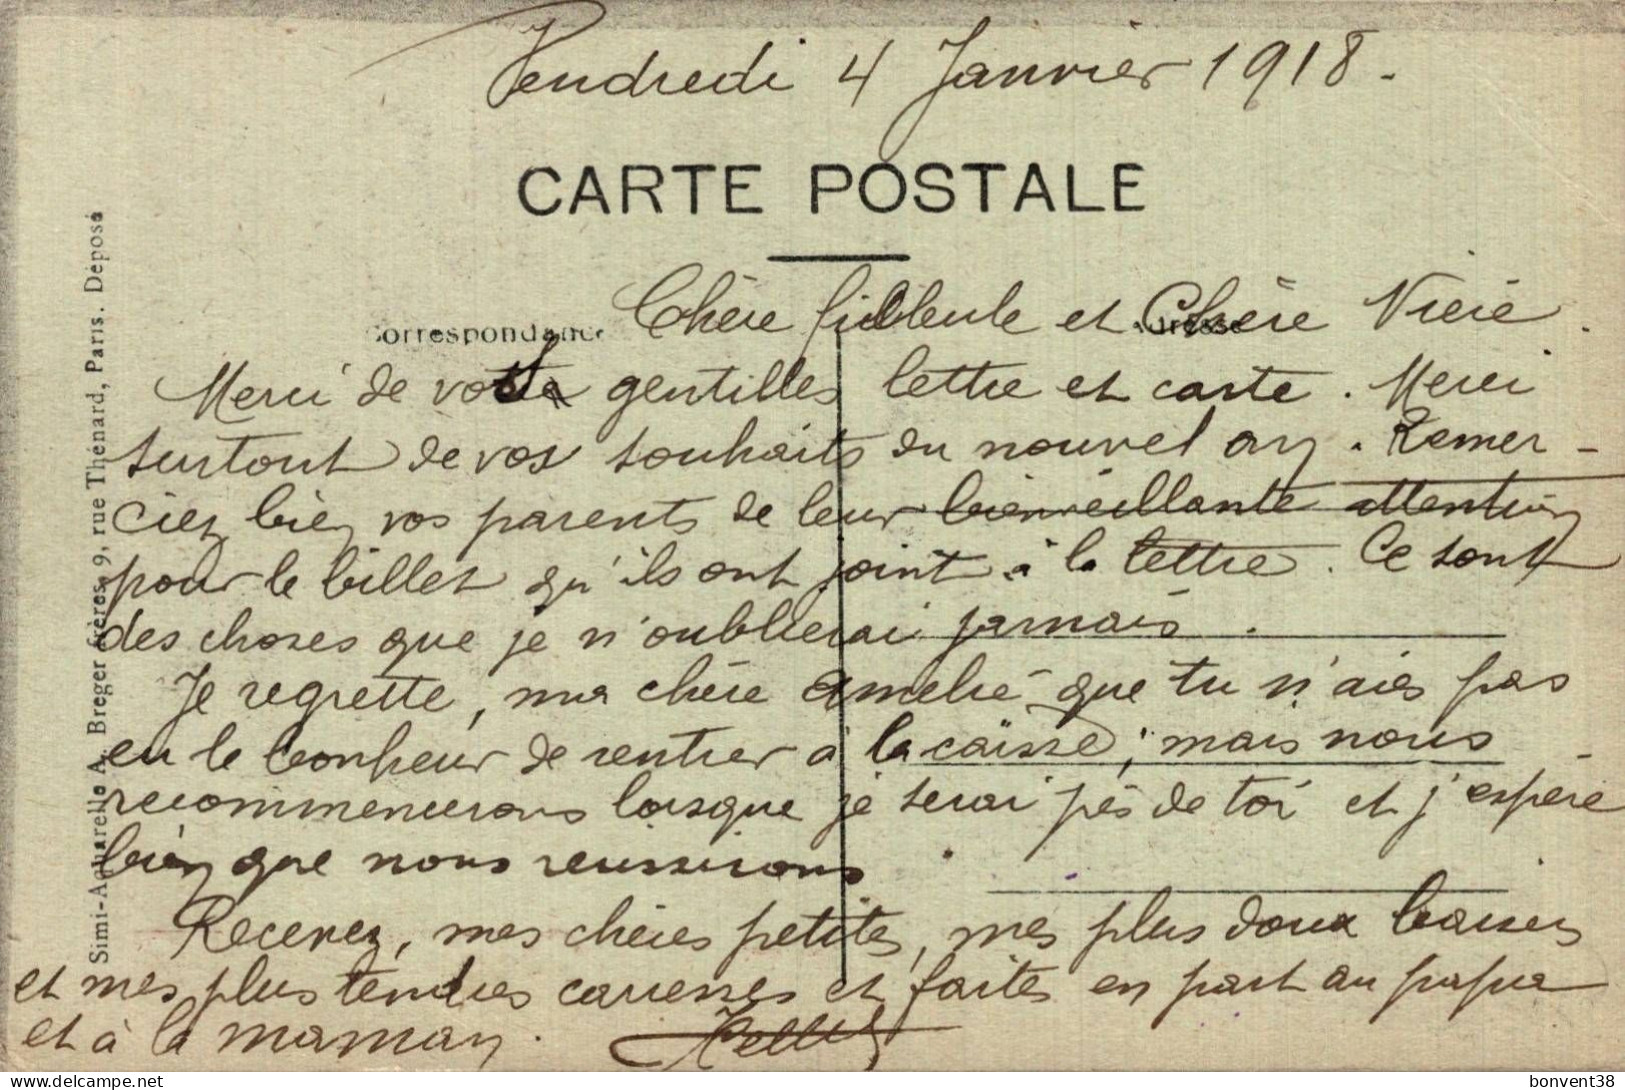 Vendredi 4 Janvier 1918.
CARTE POSTALE
Correspondance
Adresse
Chère filleule et Chère Niéié.
Merci de votre gentilles lettre et carte. Merci
surtout de vos souhaits du nouvel an. Remer-
ciez bien vos parents de leur bienveillante attention
pour le billet qu'ils ont joint à la lettre. Ce sont
des choses que je n'oublierai jamais.
Je regrette, ma chère Amélie que tu n'aies pas
eu le bonheur de rentrer à la caisse; mais nous
recommencerons lorsque je serai près de toi et j'espère
bien que nous reussirons.
Recevez, mes chères petites, mes plus doux baisers
et mes plus tendres caresses et faites en part au papa
et à la maman.
Simi-Aquarelle A. Breger frères, 9, rue Thénard, Paris. Déposé
bonvent38